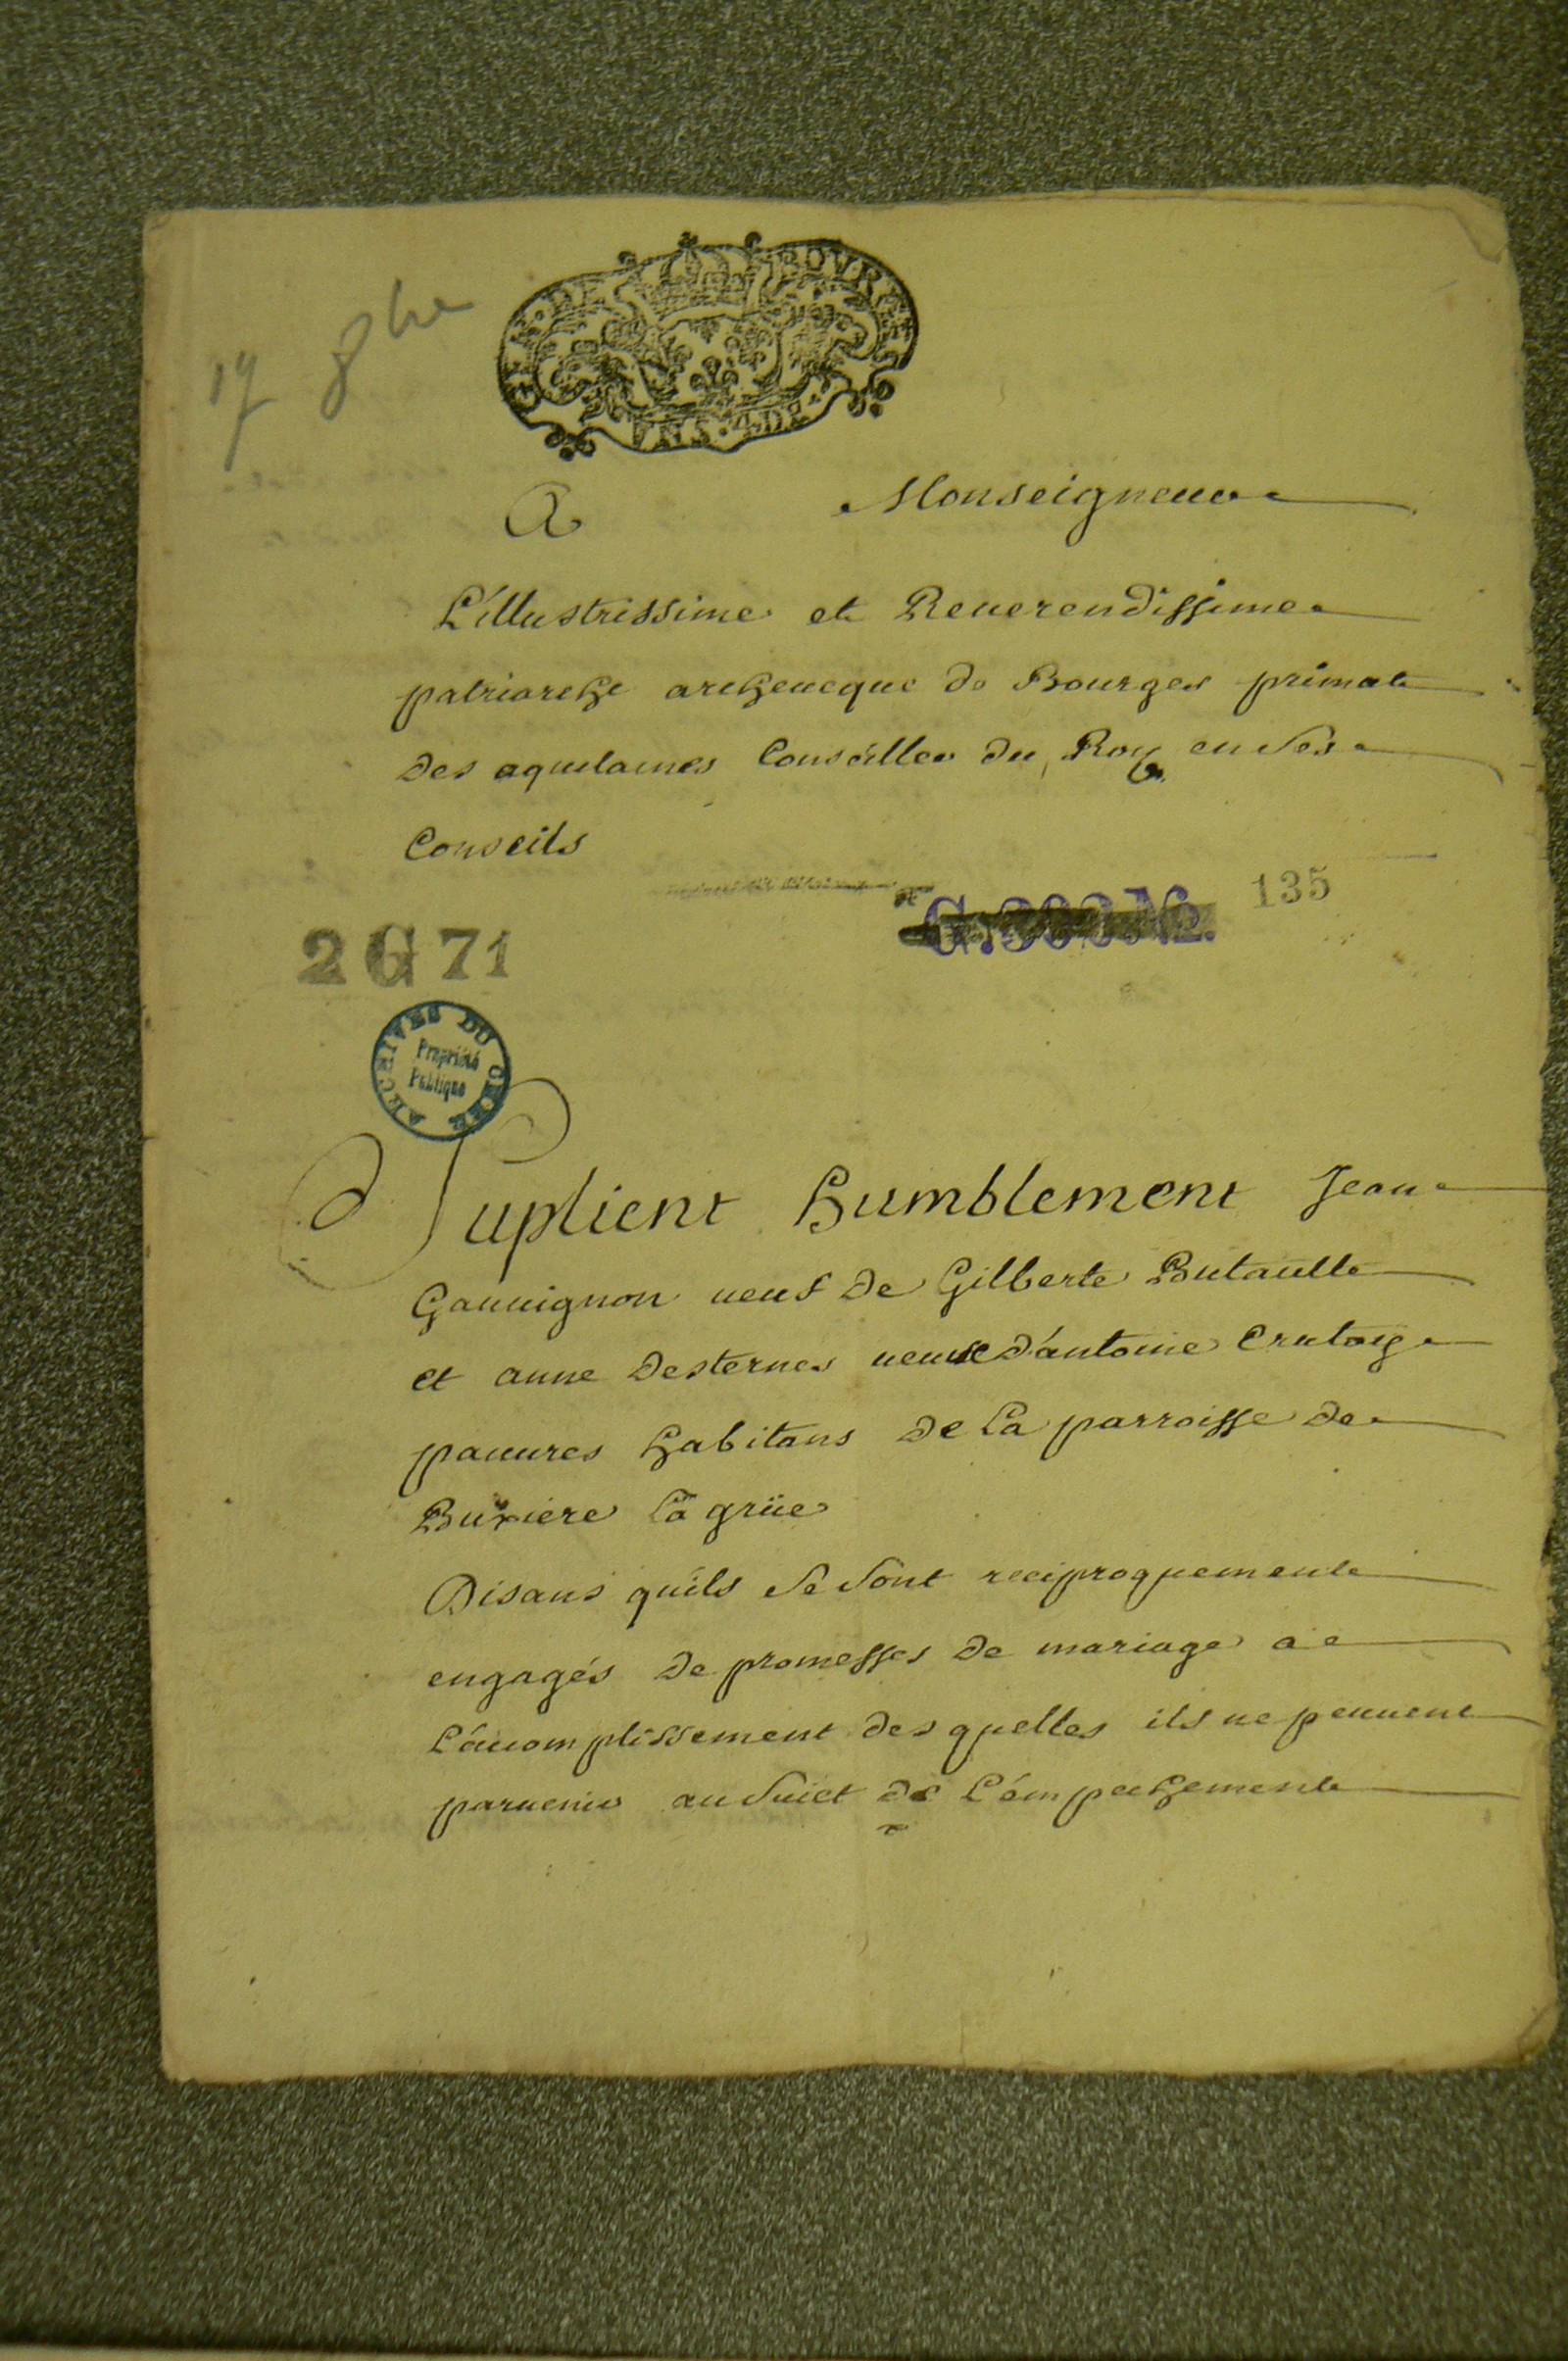 17 8bre
DE BOVRG
ENS. 4. D.
A Monseigneur
L'illustrissime et Reuerendissime
patriarche archeueque de Bourges primat
des aquitaines Conseiller du Roy en ses
Conseils
135
2 G 71
ARCHIVES DU CHER
Propriété
Publique
Suplient humblement Jean
Gauuignon ueuf de Gilberte Butaulle
et anne desternes ueuue d'antoine Crutoy
pauures habitans de la parroisse de
Buxiere la grüe
Disans qu'ils se sont reciproquement
engagés de promesses de mariage a
l'acomplissement desquelles ils ne peuuent
paruenir au suiet de l'empechement